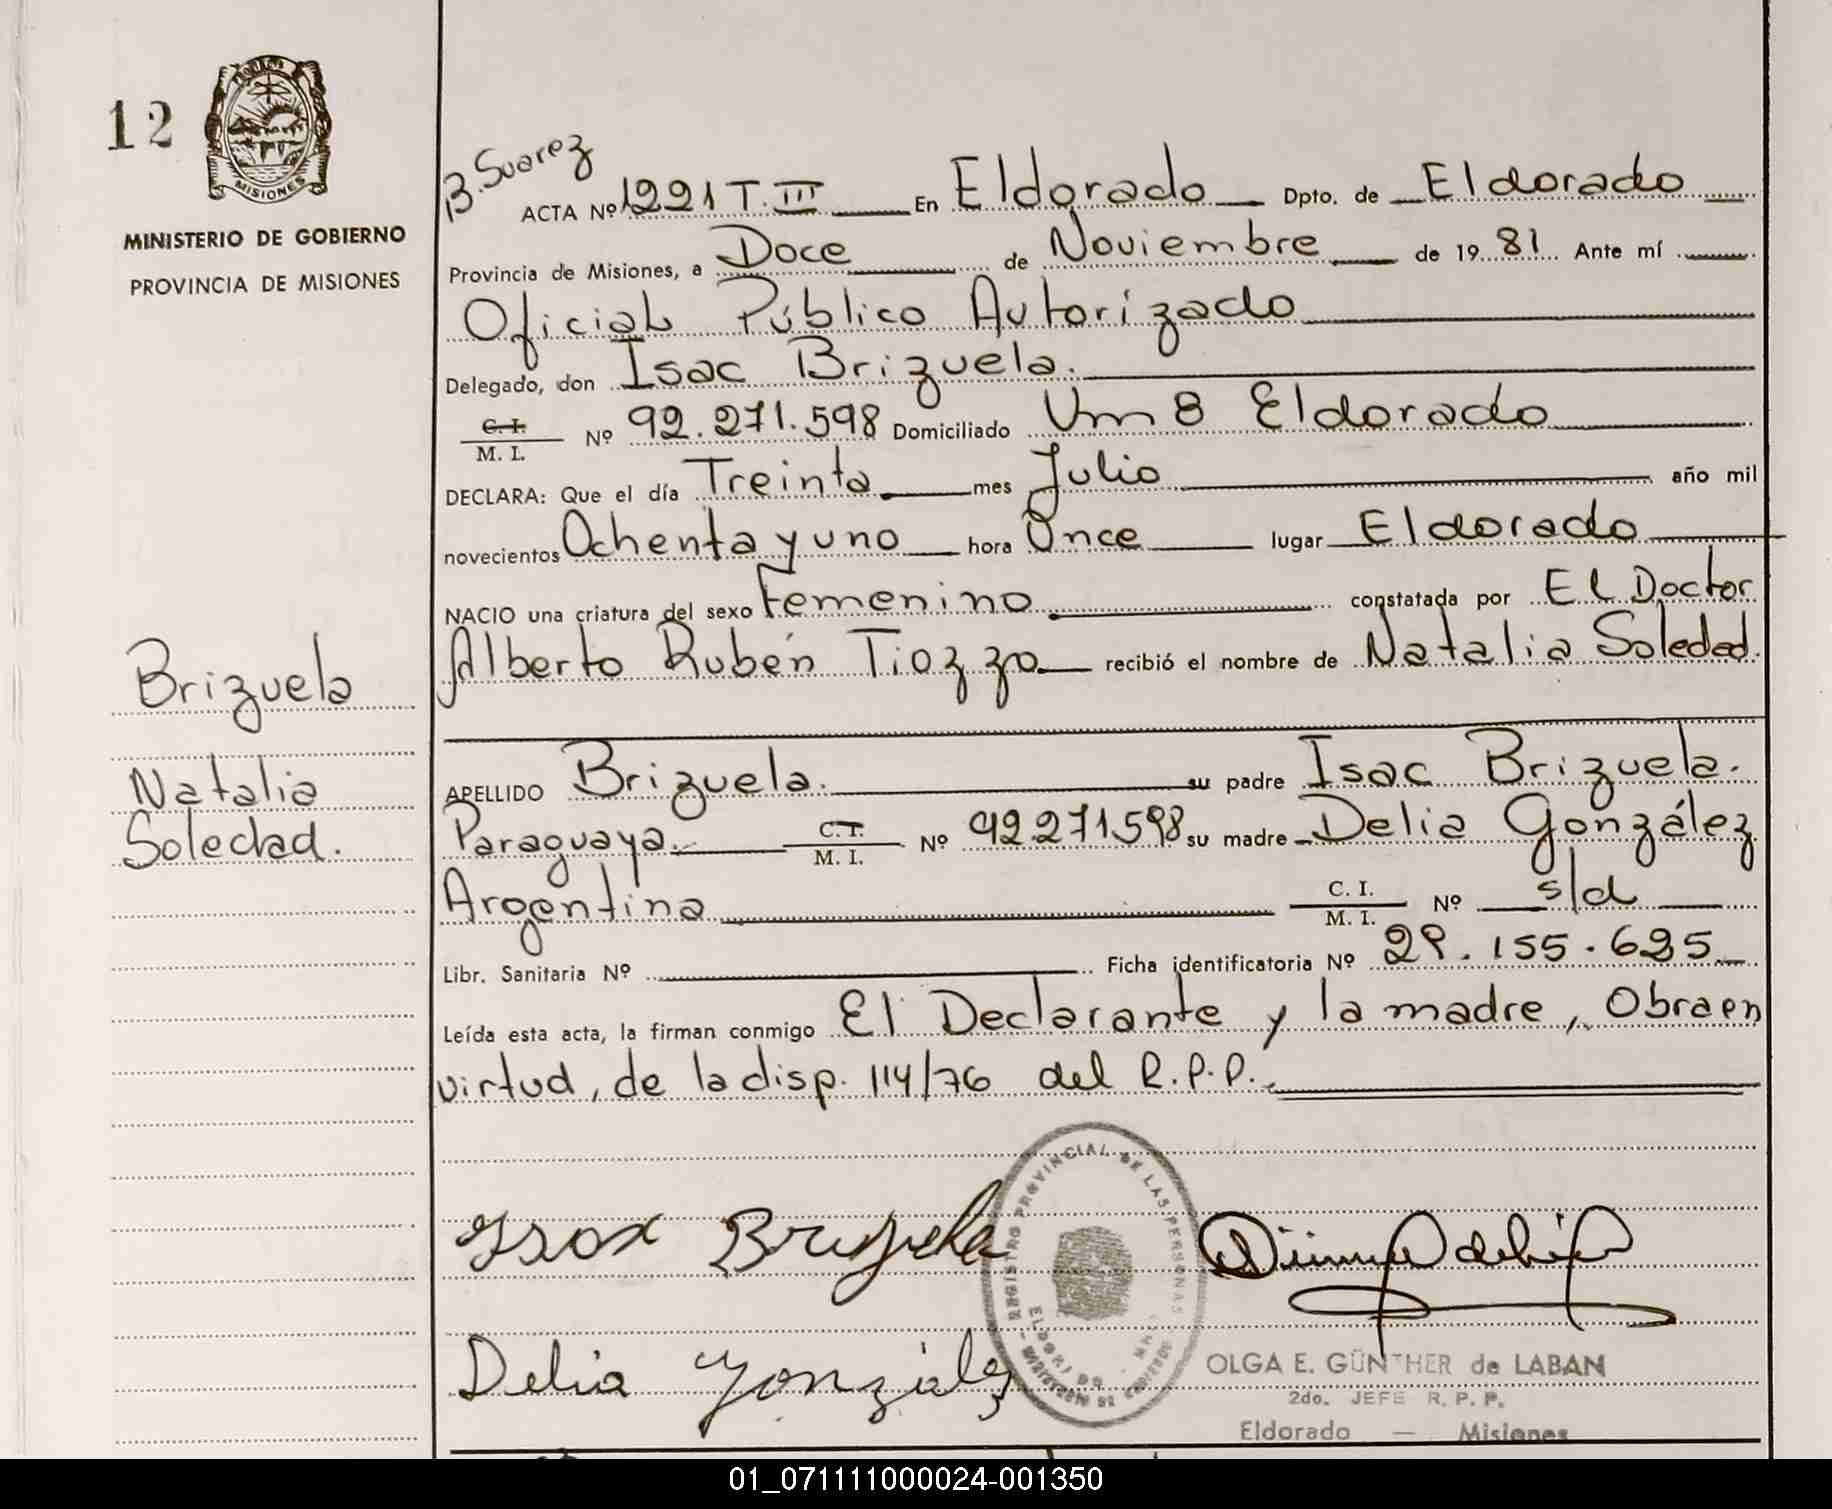 12
PROVINCIA
MISIONES
MINISTERIO DE GOBIERNO
PROVINCIA DE MISIONES
Brizuela
Natalia
Soledad.
B. Suarez
ACTA Nº 1221 T. III En Eldorado Dpto. de Eldorado
Provincia de Misiones, a Doce de Noviembre de 19 81 Ante mí
Oficial Público Autorízado
Delegado, don Isac Brizuela.
C. I. / M. I. Nº 92.271.598 Domiciliado Km 8 Eldorado
DECLARA: Que el día Treinta mes Julio año mil
novecientos Ochenta y uno hora Once lugar Eldorado
NACIO una criatura del sexo Femenino constatada por El Doctor
Alberto Rubén Tiozzo recibió el nombre de Natalia Soledad.
APELLIDO Brizuela. su padre Isac Brizuela.
Paraguaya. C. I. / M. I. Nº 92.271.598 su madre Delia González
Argentina C. I. / M. I. Nº s/d
Libr. Sanitaria Nº Ficha identificatoria Nº 29.155.625
Leída esta acta, la firman conmigo El Declarante y la madre, Obra en
virtud, de la disp. 114/76 del R.P.P.
Isac Brizuela
Delia González
REGISTRO PROVINCIAL DE LAS PERSONAS
ELDORADO
OLGA E. GÜNTHER de LABAN
2do. JEFE R. P. P.
Eldorado — Misiones
01_071111000024-001350